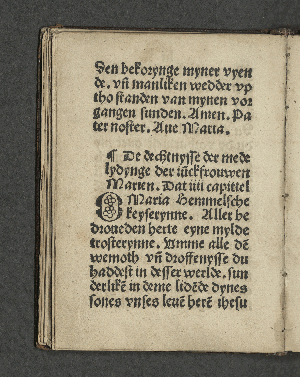 den bekorynge myner vyen
de. vn̄ manliken wedder vp
tho standen van mynen vor
gangen sunden. Amen. Pa
ter noster. Aue Maria.
¶ De dechtnysse der mede
lydynge der iūckfrouwen
Marien. Dat iiii capittel
O Maria Hemmelsche
keyserynne. Aller be
droueden herte eyne mylde
trosterynne. Vmme alle dē
wemoth vn̄ droffenysse du
haddest in desser werlde. sun
derlikē in deme lidēde dynes
sones vnses leuē herē ihesu